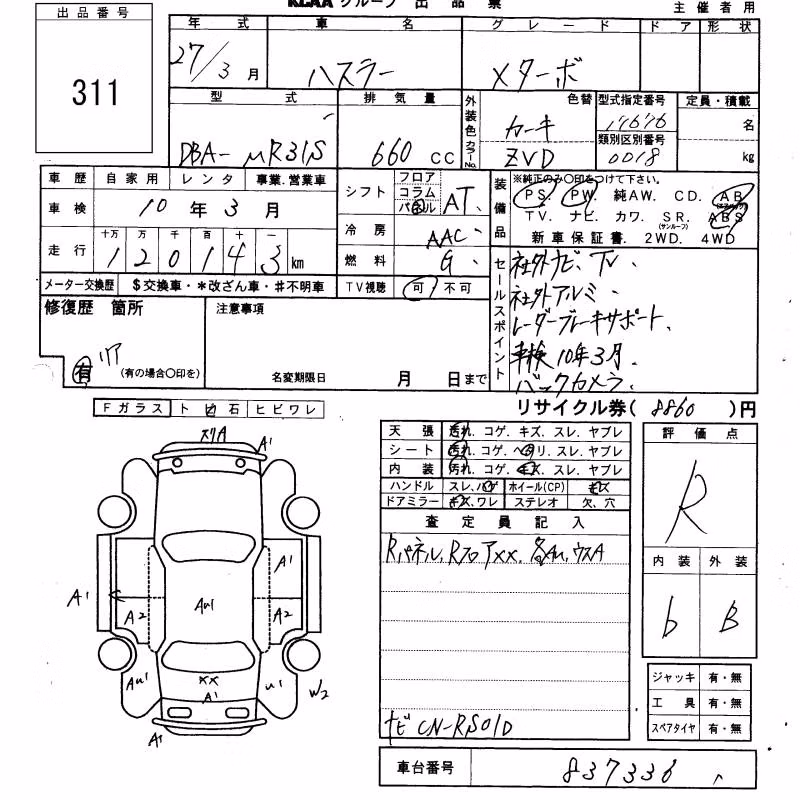 KCAA グループ 出 品 票
主 催 者 用
出 品 番 号
311
年 式
27/3 月
車 名
ハスラー
グ レ ー ド
Xターボ
ド ア
形 状
型 式
DBA- MR31S
排 気 量
660 CC
外装色
カラーNo.
色替
カーキ
ZVD
型式指定番号
17676
類別区別番号
0018
定員・積載
名
kg
車 歴
自 家 用
レ ン タ
事業.営業車
車 検
10 年 3 月
走 行
十万 万 千 百 十 一
1 2 0 1 4 3 km
メーター交換歴
$交換車・*改ざん車・#不明車
シフト
フロア
コラム
パネル
AT
冷 房
AAC
燃 料
G
TV視聴
可 不可
装備品
※純正のみ〇印をつけて下さい。
PS. PW. 純AW. CD. AB
TV. ナビ. カワ. SR. ABS
(サンルーフ)
新 車 保 証 書. 2WD. 4WD
セールスポイント
社外ナビ、TV、
社外アルミ、
レーダーブレーキサポート、
車検10年3月、
バックカメラ、
修復歴 箇所
有
リア
(有の場合〇印を)
注意事項
名変期限日
月 日まで
リサイクル券( 8860 )円
Fガラス ト ビ 石 ヒ ビ ワ レ
天 張 汚れ. コゲ. キズ. スレ. ヤブレ
シート 汚れ. コゲ. ヘタリ. スレ. ヤブレ
内 装 汚れ. コゲ. キズ. スレ. ヤブレ
ハンドル スレ.ハゲ ホイール(CP) キズ
ドアミラー キズ.ワレ ステレオ 欠. 穴
査 定 員 記 入
Rパネル, Rフロア××, 各AU, ウスA
ナビ CN-RS01D
評 価 点
R
内 装
外 装
b
B
ジャッキ 有・無
工 具 有・無
スペアタイヤ 有・無
車台番号
837336
メクリA
A1
A1
A1
A2
AU1
A2
AU1
××
A1
U1
W2
A1